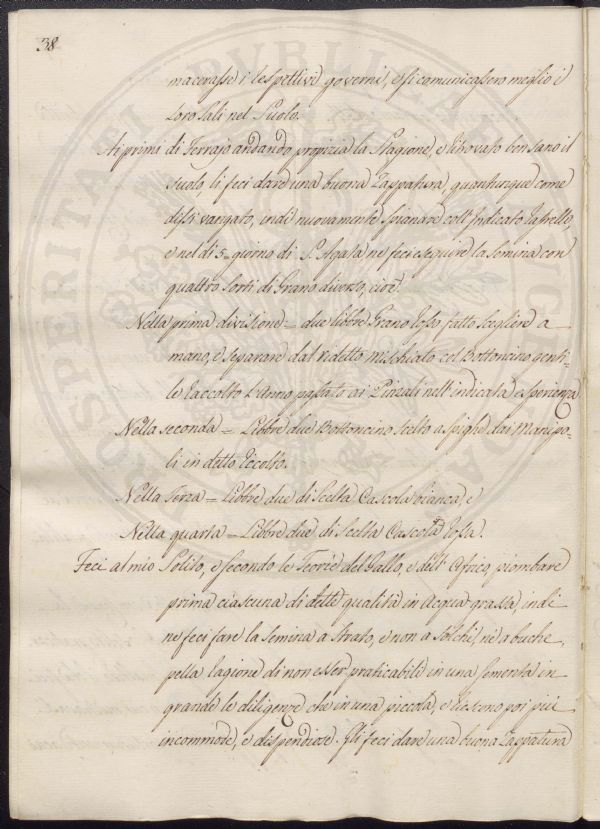 38
macerasse i respettivi governi, e si comunicassero meglio i
loro Sali nel Suolo.
Ai primi di Ferrajo andando propizia la Stagione, e ritrovato ben sano il
suolo, li feci dare una buona Zappatura, quantunque come
dissi vangato, indi nuovamente spianare coll'Indicato Rastrello,
e nel dì 5. giorno di S.ᵃ Agata ne feci eseguire la Semina con
quattro Sorti di Grano diverso, cioè
Nella prima divisione = due libbre Grano Rosso fatto scegliere a
mano, e separare dal ridetto mischiato col Bottoncino genti-
le raccolto l'anno passato ai Piazzali nell'indicata esperienza
Nella seconda = Libbre due Bottoncino scelto a spighe dai Manipo-
li in detto Ricolto.
Nella Terza = Libbre due di Scelta Cascola bianca, e
Nella quarta = Libbre due di Scelta Cascola rossa.
Feci al mio Solito, e secondo le Teorie del Gallo, e dell' Africo, piombare
prima ciascuna di dette qualità in Acqua grassa, indi
ne feci fare la Semina a Strato, e non a Solchi, nè a buche,
pella ragione di non esser praticabili in una Sementa in
grande le diligenze che in una piccola, e riescono poi più
incommode, e dispendiose. Gli feci dare una buona Zappatura
PROSPERITATI PVBLICAE AVGENDAE